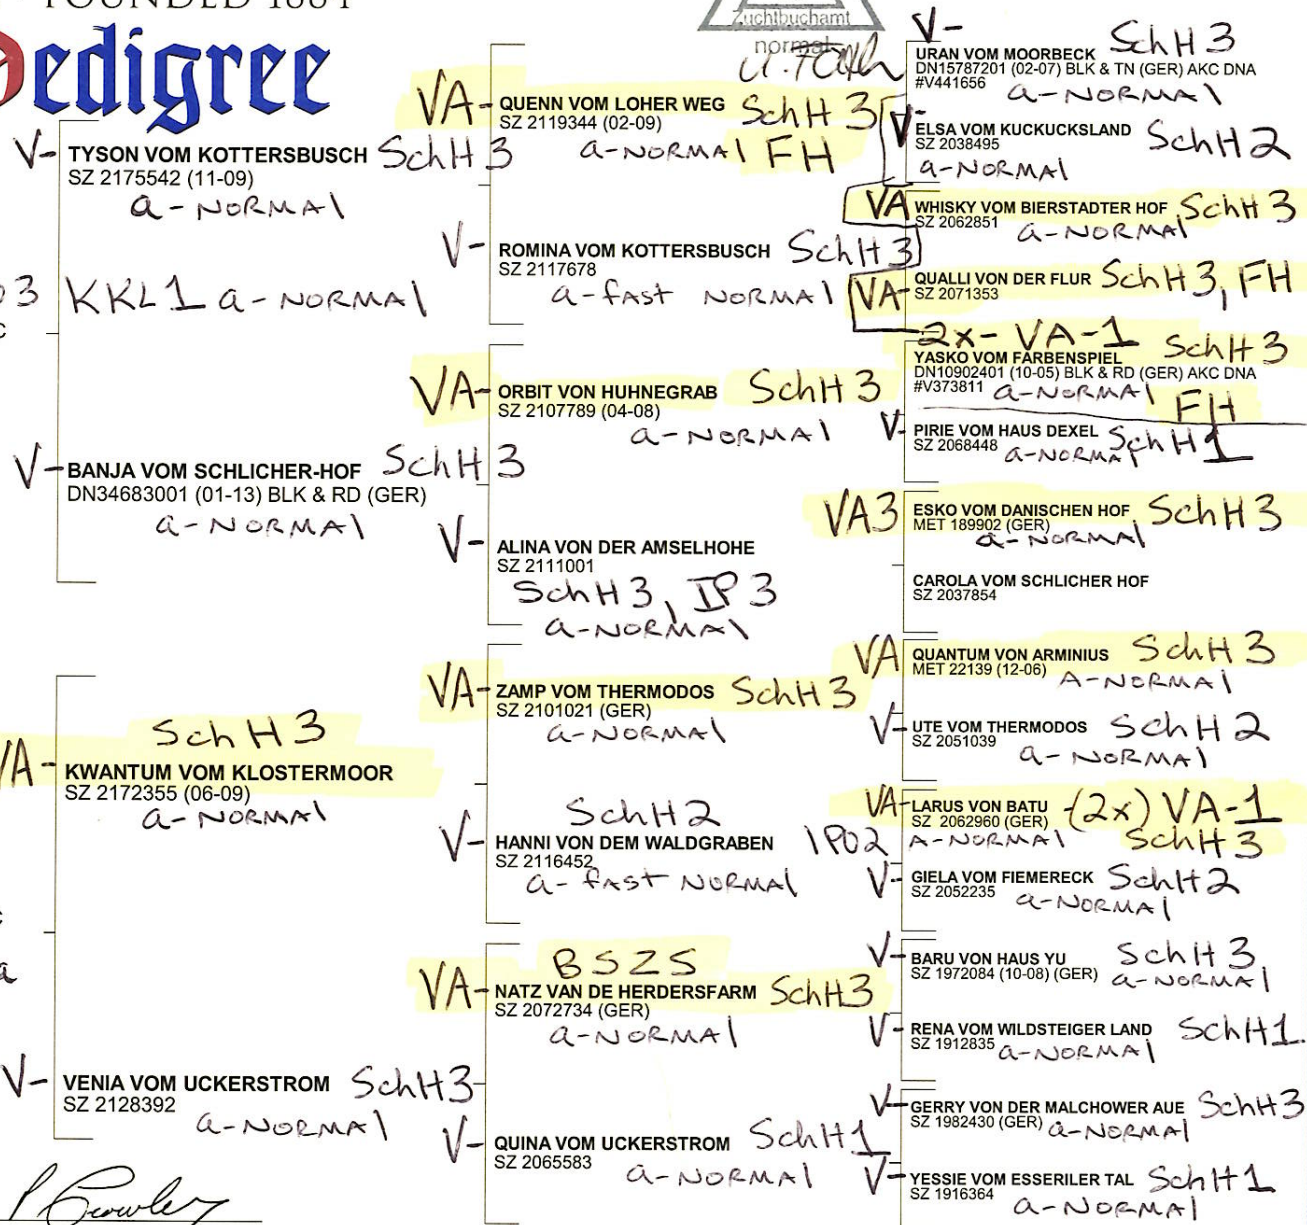 FOUNDED 1884
Pedigree
Zuchtbuchamt
normal
V- TYSON VOM KOTTERSBUSCH SchH 3
SZ 2175542 (11-09)
a-NORMAl
3 KKL1 a-NORMAl
V- BANJA VOM SCHLICHER-HOF SchH 3
DN34683001 (01-13) BLK & RD (GER)
a-NORMAl
SchH 3
VA- KWANTUM VOM KLOSTERMOOR
SZ 2172355 (06-09)
a-NORMAl
a
V- VENIA VOM UCKERSTROM SchH3
SZ 2128392
a-NORMAl
VA- QUENN VOM LOHER WEG SchH 3
SZ 2119344 (02-09)
a-NORMAl FH
V- ROMINA VOM KOTTERSBUSCH SchH3
SZ 2117678
a-fast NORMAl
VA- ORBIT VON HUHNEGRAB SchH 3
SZ 2107789 (04-08)
a-NORMAl
V- ALINA VON DER AMSELHOHE
SZ 2111001
SchH3, IP3
a-NORMAl
VA- ZAMP VOM THERMODOS SchH3
SZ 2101021 (GER)
a-NORMAl
SchH2
V- HANNI VON DEM WALDGRABEN IPO2
SZ 2116452
a-fAst NORMAl
BSZS
VA- NATZ VAN DE HERDERSFARM SchH3
SZ 2072734 (GER)
a-NORMAl
V- QUINA VOM UCKERSTROM SchH1
SZ 2065583
a-NORMAl
V-
URAN VOM MOORBECK SchH 3
DN15787201 (02-07) BLK & TN (GER) AKC DNA
#V441656
a-NORMAl
V- ELSA VOM KUCKUCKSLAND SchH2
SZ 2038495
a-NORMAl
VA WHISKY VOM BIERSTADTER HOF SchH 3
SZ 2062851
a-NORMAl
VA- QUALLI VON DER FLUR SchH3, FH
SZ 2071353
2x- VA-1
YASKO VOM FARBENSPIEL SchH3
DN10902401 (10-05) BLK & RD (GER) AKC DNA
#V373811 a-NORMAl FH
V- PIRIE VOM HAUS DEXEL SchH1
SZ 2068448 a-NORMAl
VA3 ESKO VOM DANISCHEN HOF SchH3
MET 189902 (GER)
a-NORMAl
CAROLA VOM SCHLICHER HOF
SZ 2037854
VA QUANTUM VON ARMINIUS SchH3
MET 22139 (12-06) A-NORMAl
V- UTE VOM THERMODOS SchH2
SZ 2051039
a-NORMAl
VA- LARUS VON BATU -(2x) VA-1
SZ 2062960 (GER)
A-NORMAl SchH3
V- GIELA VOM FIEMERECK SchH2
SZ 2052235 a-NORMAl
V- BARU VON HAUS YU SchH3
SZ 1972084 (10-08) (GER) a-NORMAl
V- RENA VOM WILDSTEIGER LAND SchH1.
SZ 1912835 a-NORMAl
V- GERRY VON DER MALCHOWER AUE SchH3
SZ 1982430 (GER) a-NORMAl
V- YESSIE VOM ESSERILER TAL SchH1
SZ 1916364 a-NORMAl